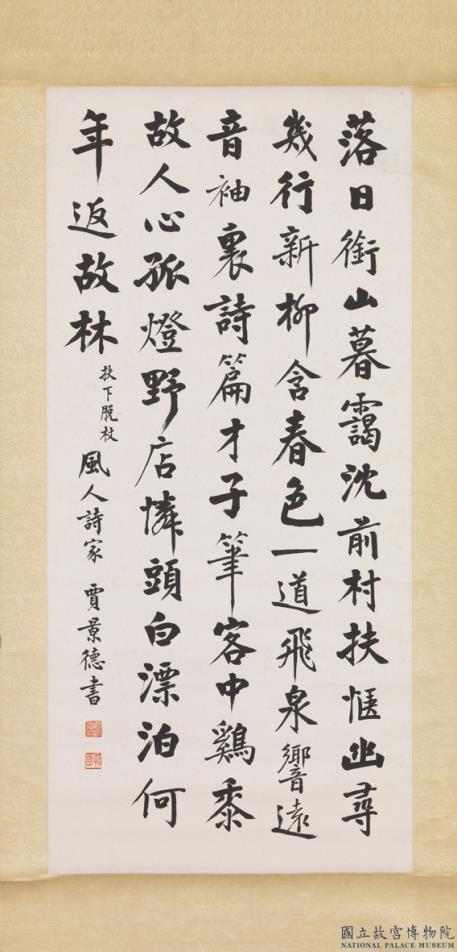 落日銜山暮靄沈前村扶愜幽尋
幾行新柳含春色一道飛泉響遠
音袖裏詩篇才子筆客中鷄黍
故人心孤燈野店憐頭白漂泊何
年返故林扶下脫杖風人詩家 賈景德書
國立故宮博物院
NATIONAL PALACE MUSEUM